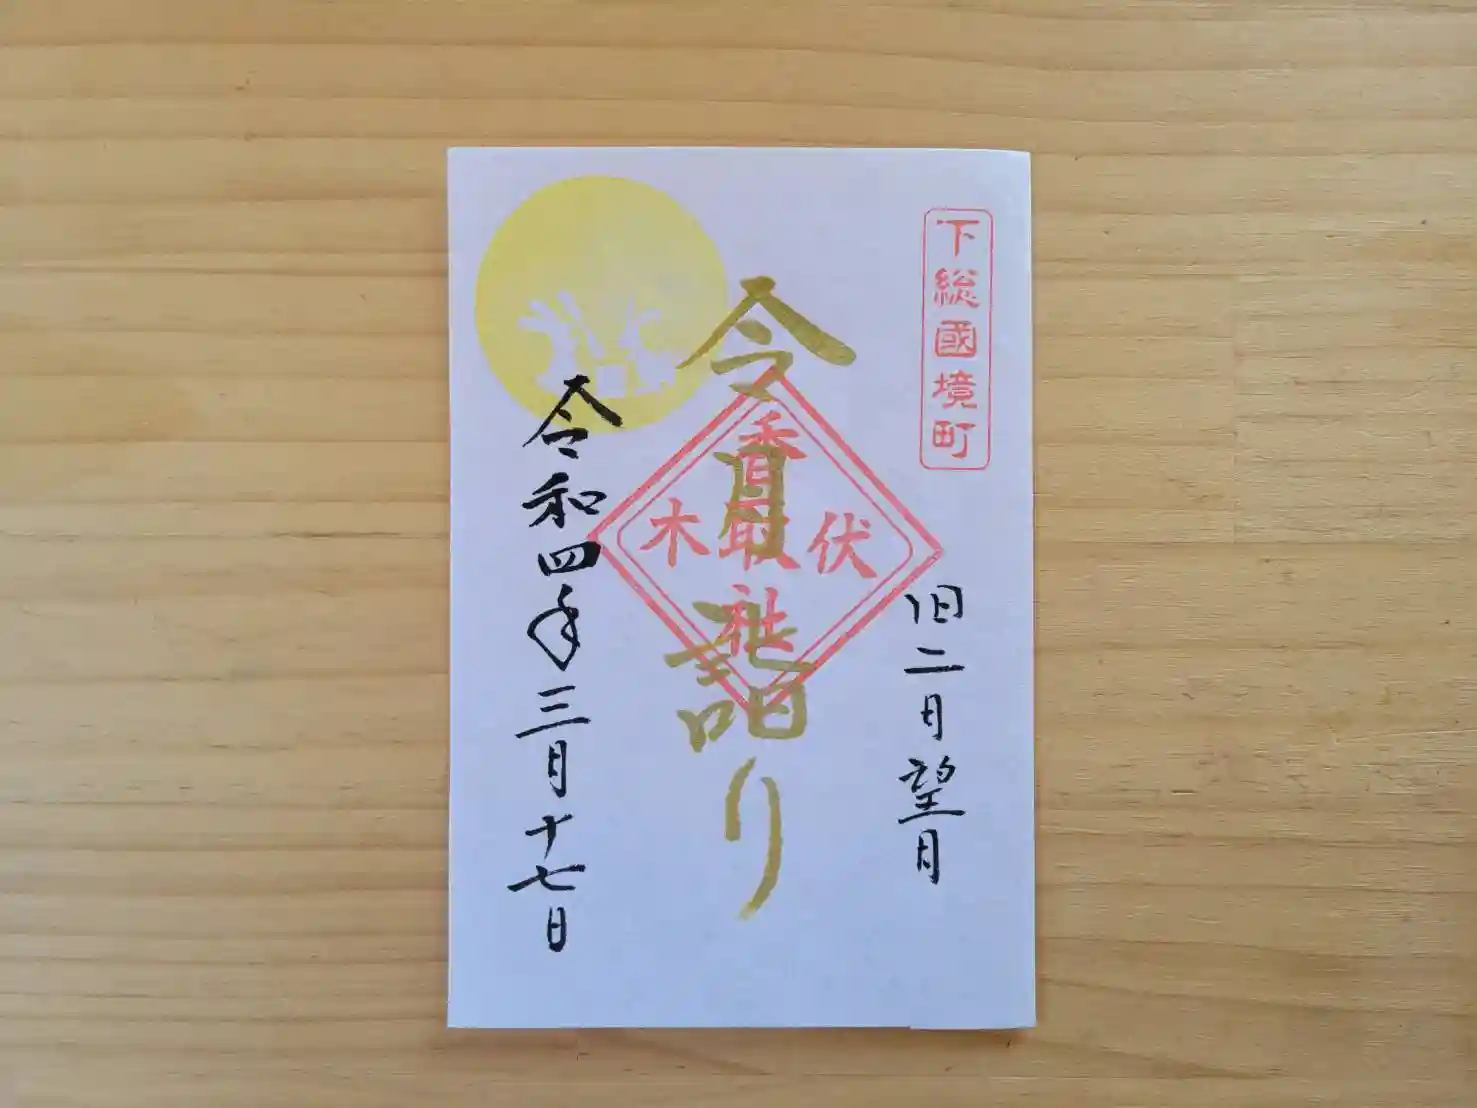 下総國境町
旧二月望月
令月詣り
伏木
香取社
令和四年三月十七日